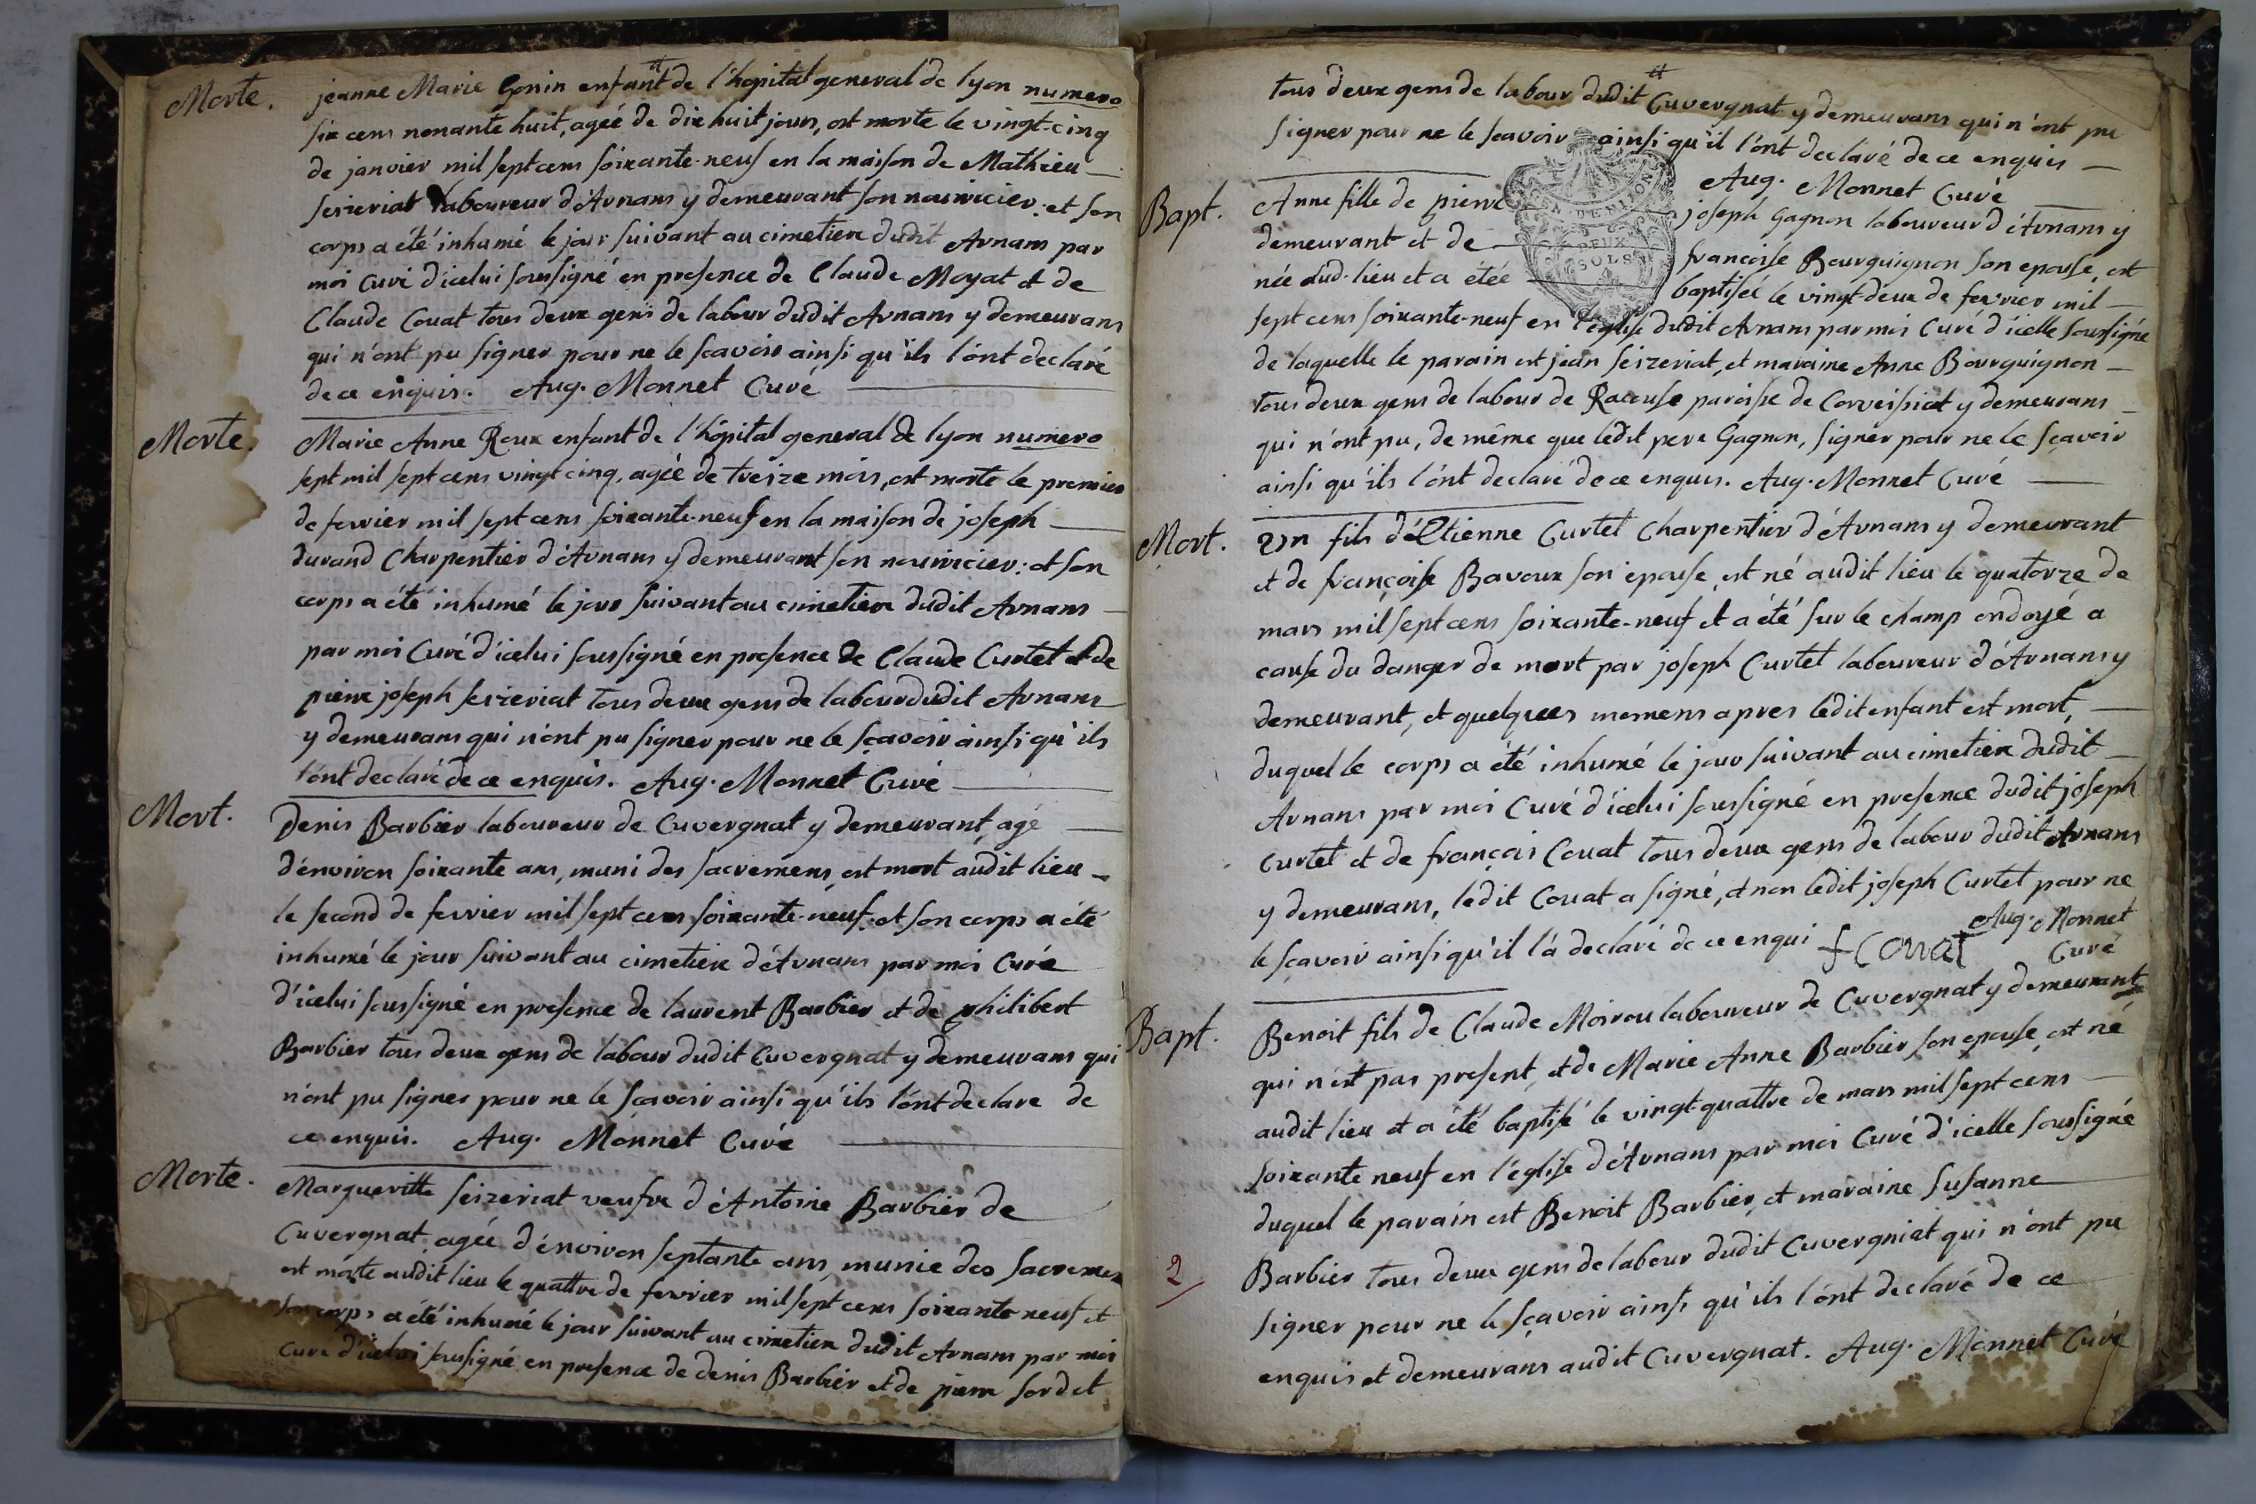 Morte.
jeanne Marie Gonin enfant de l'hopital general de lyon numero
six cens nonante huit, ageé de dix huit jours, est morte le vingt-cinq
de janvier mil sept cens soixante-neuf en la maison de Mathieu
seizeriat laboureur d'Arnans y demeurant son nourricier: et son
corps a été inhumé le jour suivant au cimetiere dudit Arnans par
moi Curé d'icelui soussigné en presence de Claude Moyat et de
Claude Couat tous deux gens de labour dudit Arnans y demeurans
qui n'ont pu signer pour ne le scavoir ainsi qu'ils l'ont declaré
de ce enquis. Aug. Monnet Curé
Morte.
Marie Anne Roux enfant de l'hôpital general de lyon numero
sept mil sept cens vingt cinq, agée de treize mois, est morte le premier
de fevrier mil sept cens soixante-neuf en la maison de joseph
durand Charpentier d'Arnans y demeurant son nourricier: et son
corps a été inhumé le jour suivant au cimetiere dudit Arnans
par moi Curé d'icelui soussigné en presence de Claude Curtet et de
pierre joseph seizeriat tous deux gens de labour dudit Arnans
y demeurans qui n'ont pu signer pour ne le sçavoir ainsi qu'ils
l'ont declaré de ce enquis. Aug. Monnet Curé
Mort.
Denis Barbier laboureur de Cuvergnat y demeurant, agé
d'environ soixante ans, muni des sacremens, est mort audit lieu
le second de fevrier mil sept cens soixante-neuf et son corps a été
inhumé le jour suivant au cimetiere d'Arnans par moi Curé
d'icelui soussigné en presence de laurent Barbier et de philibert
Barbier tous deux gens de labour dudit Cuvergnat y demeurans qui
n'ont pu signer pour ne le sçavoir ainsi qu'ils l'ont declare de
ce enquis. Aug. Monnet Curé
Morte.
Margueritte seizeriat veufve d'Antoine Barbier de
Cuvergnat, agée d'environ septante ans, munie des sacremens
est morte audit lieu le quattre de fevrier mil sept cens soixante neuf et
son corps a été inhumé le jour suivant au cimetiere dudit Arnans par moi
Curé d'icelui soussigné en presence de denis Barbier et de pierre sordet
tous deux gens de labour dudit Cuvergnat y demeurans qui n'ont pu
signer pour ne le scavoir ainsi qu'il l'ont declaré de ce enquis
Aug. Monnet Curé
Bapt.
Anne fille de pierre joseph Gagnon laboureur d'Arnans y
demeurant et de francoise Bourguignon son epouse, est
née aud. lieu et a étée baptisée le vingt-deux de fevrier mil
GEN. DE MI
DEUX
SOLS
sept cens soixante-neuf en l'eglise dudit Arnans par moi Curé d'icelle soussigné
de laquelle le parain est jean seizeriat, et maraine Anne Bourguignon
tous deux gens de labour de Racouse paroisse de Corveissiat y demeurans
qui n'ont pu, de même que ledit pere Gagnon, signer pour ne le sçavoir
ainsi qu'ils l'ont declaré de ce enquis. Aug. Monnet Curé
Mort.
Un fils d'Etienne Curtet Charpentier d'Arnans y demeurant
et de françoise Bavoux son epouse, est né audit lieu le quatorze de
mars mil sept cens soixante-neuf et a été sur le champ ondoyé a
cause du danger de mort par joseph Curtet laboureur d'Arnans y
demeurant, et quelques momens apres ledit enfant est mort,
duquel le corps a été inhumé le jour suivant au cimetiere dudit
Arnans par moi Curé d'icelui soussigné en presence dudit joseph
Curtet et de françois Couat tous deux gens de labour dudit Arnans
y demeurans, ledit Couat a signé, et non ledit joseph Curtet pour ne
le sçavoir ainsi qu'il l'a declaré de ce enqui f Couat Aug. Monnet
Curé
Bapt.
Benoit fils de Claude Moirou laboureur de Cuvergnat y demeurant
qui n'est pas present, et de Marie Anne Barbier son epouse, est né
audit lieu et a été baptisé le vingt-quattre de mars mil sept cens
soixante neuf en l'église d'Arnans par moi Curé d'icelle soussigné
duquel le parain est Benoit Barbier, et maraine Susanne
2
Barbier tous deux gens de labour dudit Cuvergniat qui n'ont pu
signer pour ne le sçavoir ainsi qu'ils l'ont declaré de ce
enquis et demeurans audit Cuvergnat. Aug. Monnet Curé